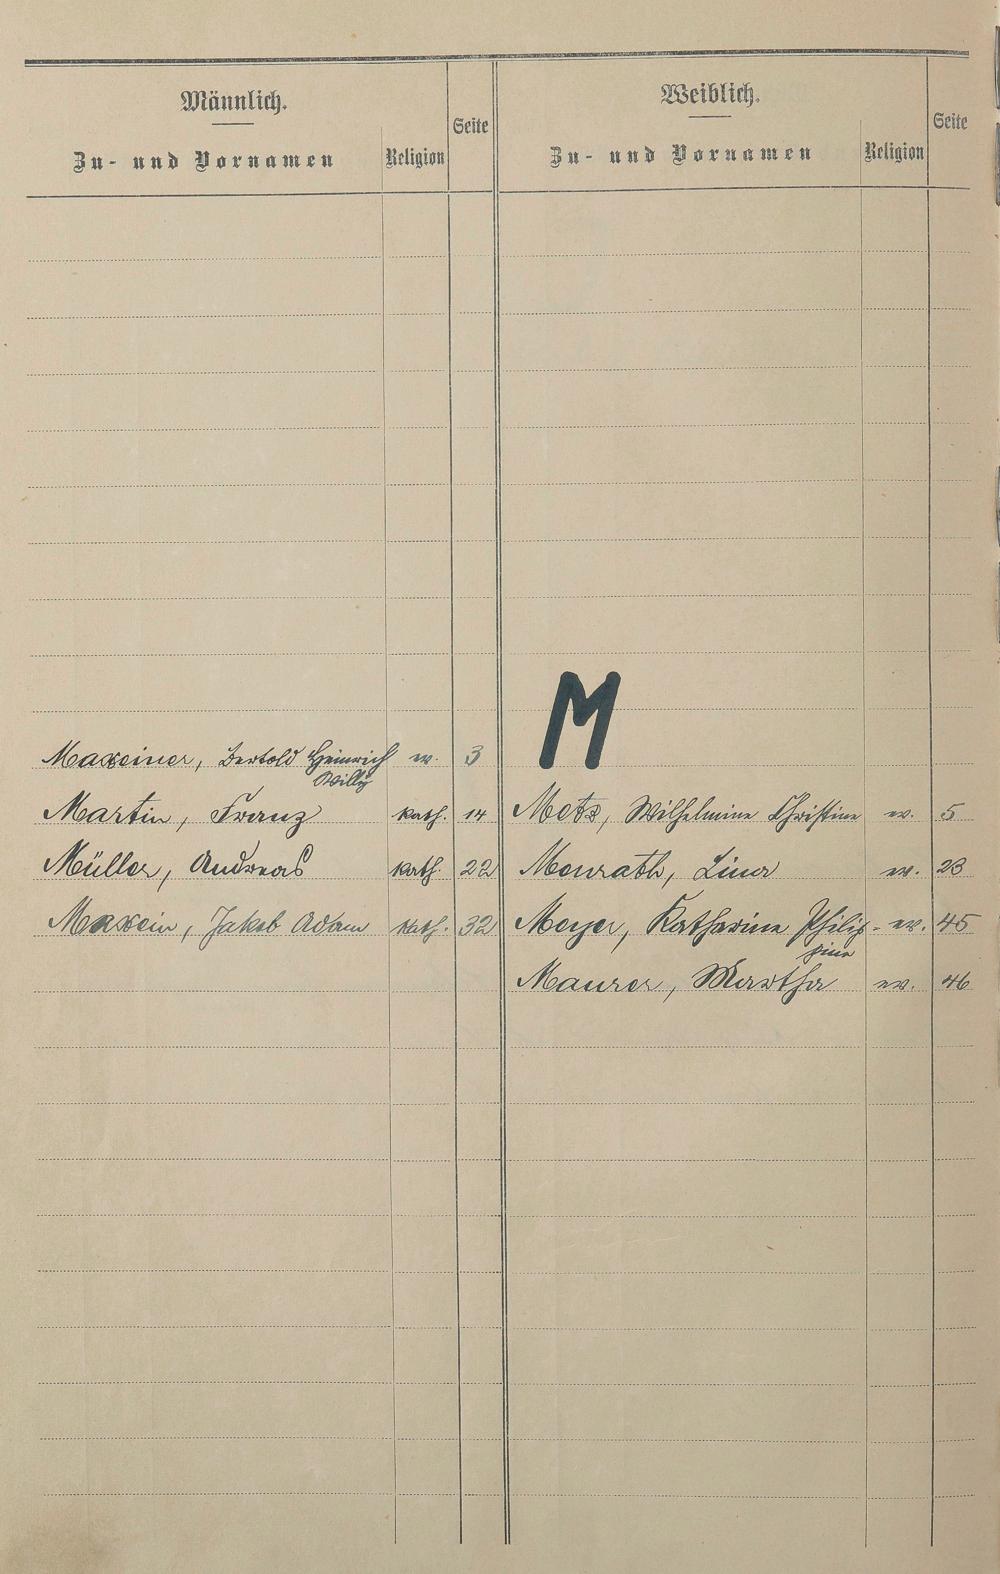 Männlich.
Zu- und Vornamen
Religion
Seite
Weiblich.
Zu- und Vornamen
Religion
Seite
M
Maxeiner, Bertold Heinrich ev. 3
Willy
Martin, Franz kath. 14
Metz, Wilhelmine Christine ev. 5
Müller, Andreas kath. 22
Menrath, Lina ev. 23
Maxein, Jakob Adam kath. 32
Meyer, Katharine Philip- ev. 45
pine
Maurer, Martha ev. 46